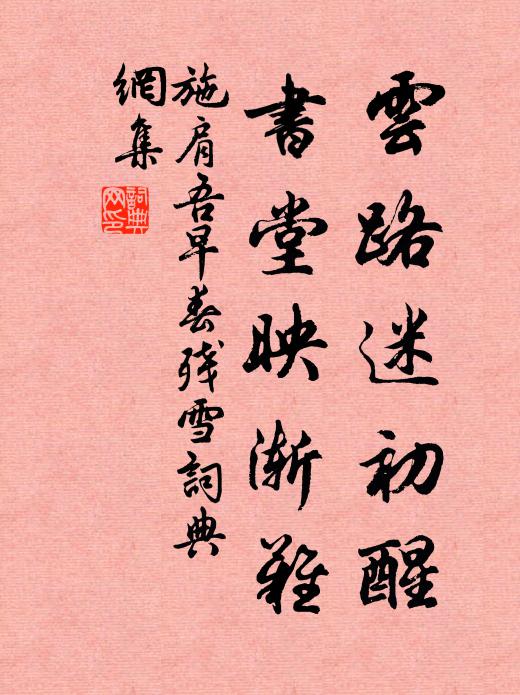 雲路迷初醒
書堂映漸難
施肩吾早春殘雪詞典
網集
詞典網印